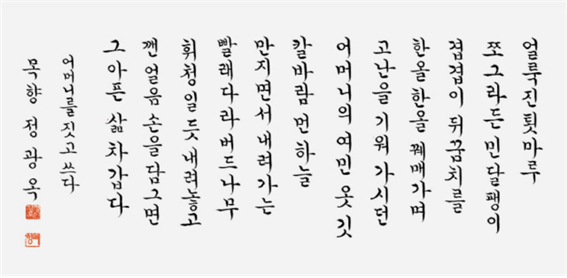 얼룩진 툇마루
쪼그라든 민달팽이
겹겹이 뒤꿈치를
한올 한올 꿰매가며
고난을 기워 가시던
어머니의 여민 옷깃
칼바람 먼 하늘
만지면서 내려가는
빨래다라 버드나무
휘청일 듯 내려놓고
깬 얼음 손을 담그면
그 아픈 삶 차갑다
어머니를 짓고 쓰다
목향 정광옥